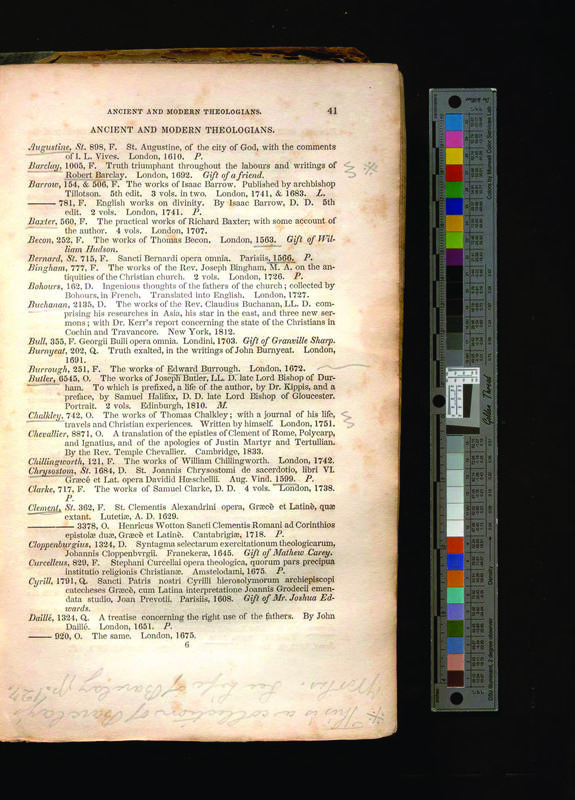 ANCIENT AND MODERN THEOLOGIANS. 41
ANCIENT AND MODERN THEOLOGIANS.
Augustine, St. 898, F. St. Augustine, of the city of God, with the comments
of I. L. Vives. London, 1610. P.
Barclay, 1005, F. Truth triumphant throughout the labours and writings of
Robert Barclay. London, 1692. Gift of a friend.
Barrow, 154, & 506, F. The works of Isaac Barrow. Published by archbishop
Tillotson. 5th edit. 3 vols. in two. London, 1741, & 1683. L.
—— 781, F. English works on divinity. By Isaac Barrow, D. D. 5th
edit. 2 vols. London, 1741. P.
Baxter, 560, F. The practical works of Richard Baxter; with some account of
the author. 4 vols. London, 1707.
Becon, 252, F. The works of Thomas Becon. London, 1563. Gift of Wil-
liam Hudson.
Bernard, St. 715, F. Sancti Bernardi opera omnia. Parisiis, 1566. P.
Bingham, 777, F. The works of the Rev. Joseph Bingham, M. A. on the an-
tiquities of the Christian church. 2 vols. London, 1726. P.
Bohours, 162, D. Ingenious thoughts of the fathers of the church; collected by
Bohours, in French. Translated into English. London, 1727.
Buchanan, 2135, D. The works of the Rev. Claudius Buchanan, LL. D. com-
prising his researches in Asia, his star in the east, and three new ser-
mons; with Dr. Kerr's report concerning the state of the Christians in
Cochin and Travancore. New York, 1812.
Bull, 355, F. Georgii Bulli opera omnia. Londini, 1703. Gift of Granville Sharp.
Burnyeat, 202, Q. Truth exalted, in the writings of John Burnyeat. London,
1691.
Burrough, 251, F. The works of Edward Burrough. London, 1672.
Butler, 6545, O. The works of Joseph Butler, LL. D. late Lord Bishop of Dur-
ham. To which is prefixed, a life of the author, by Dr. Kippis, and a
preface, by Samuel Halifax, D. D. late Bishop of Gloucester.
Portrait. 2 vols. Edinburgh, 1810. M.
Chalkley, 742, O. The works of Thomas Chalkley; with a journal of his life,
travels and Christian experiences. Written by himself. London, 1751.
Chevallier, 8871, O. A translation of the epistles of Clement of Rome, Polycarp,
and Ignatius, and of the apologies of Justin Martyr and Tertullian.
By the Rev. Temple Chevallier. Cambridge, 1833.
Chillingworth, 121, F. The works of William Chillingworth. London, 1742.
Chrysostom, St. 1684, D. St. Joannis Chrysostomi de sacerdotio, libri VI.
Græcè et Lat. opera Davidid Hœschellii. Aug. Vind. 1599. P.
Clarke, 717, F. The works of Samuel Clarke, D. D. 4 vols. London, 1738.
P.
Clement, St. 362, F. St. Clementis Alexandrini opera, Græcè et Latinè, quæ
extant. Lutetiæ, A. D. 1629.
—— 3378, O. Henricus Wotton Sancti Clementis Romani ad Corinthios
epistolæ duæ, Græcè et Latinè. Cantabrigiæ, 1718. P.
Cloppenburgius, 1324, D. Syntagma selectarum exercitationum theologicarum,
Johannis Cloppenbvrgii. Franekeræ, 1645. Gift of Mathew Carey.
Curcelleus, 829, F. Stephani Curcellæi opera theologica, quorum pars precipua
institutio religionis Christianæ. Amstelodami, 1675. P.
Cyrill, 1791, Q. Sancti Patris nostri Cyrilli hierosolymorum archiepiscopi
catecheses Græcè, cum Latina interpretatione Joannis Grodecii emen-
data studio, Joan Prevotii. Parisiis, 1608. Gift of Mr. Joshua Ed-
wards.
Daillé, 1324, Q. A treatise concerning the right use of the fathers. By John
Daillé. London, 1651. P.
—— 920, O. The same. London, 1675.
6
* This is a collection of Barclay's
Works. See Life of Barclay, p. 127.
Golden Thread